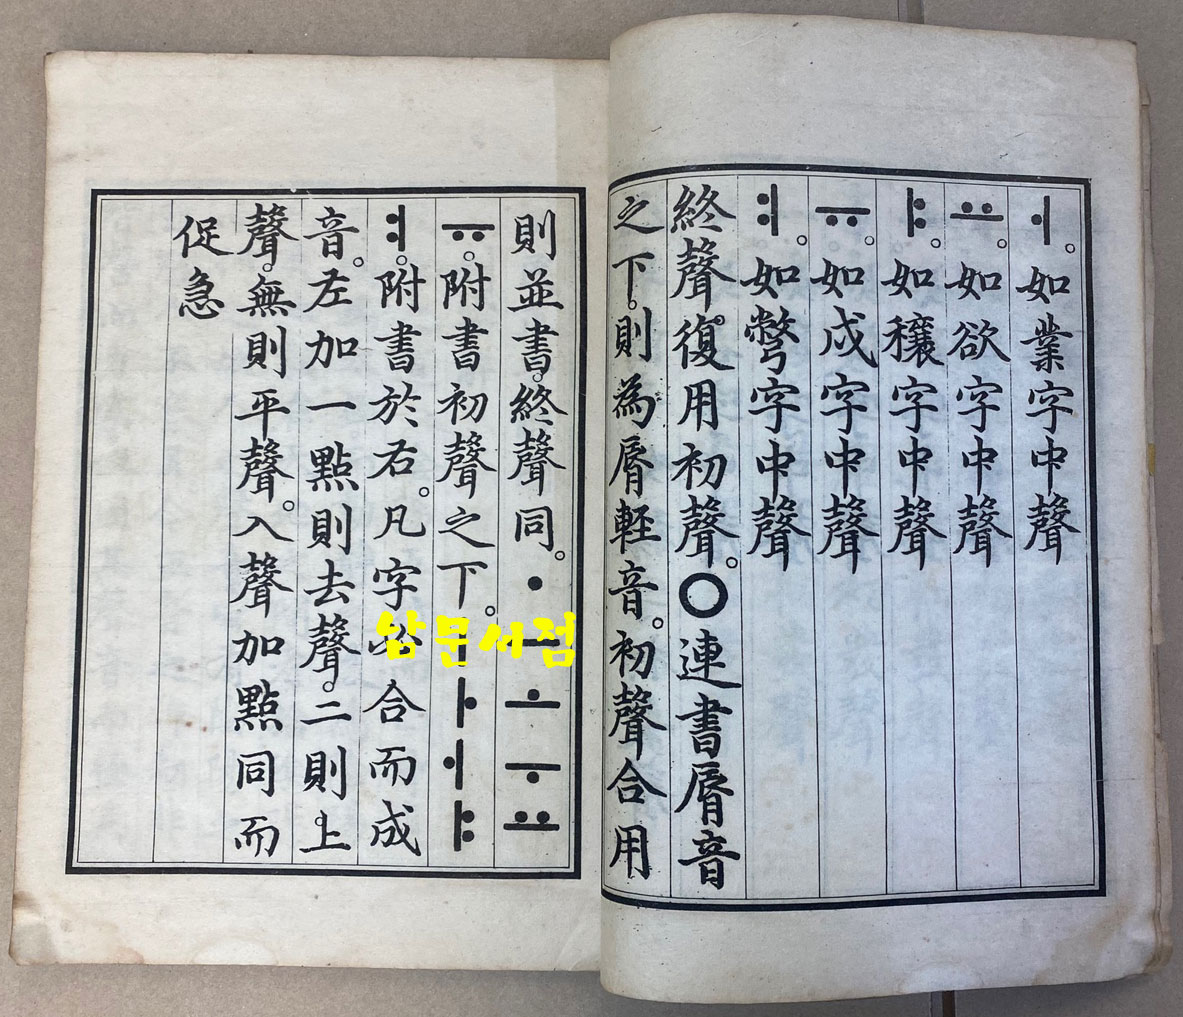 ㅓ。如業字中聲
ㅛ。如欲字中聲
ㅑ。如穰字中聲
ㅠ。如戌字中聲
ㅕ。如彆字中聲
終聲。復用初聲。○連書脣音
之下。則為脣軽音。初聲合用
則並書。終聲同。ㆍㅡㅗㅜㅛ
ㅠ。附書初聲之下。ㅣㅏㅓㅑ
ㅕ。附書於右。凡字必合而成
音。左加一點則去聲。二則上
聲。無則平聲。入聲加點同而
促急
남문서점